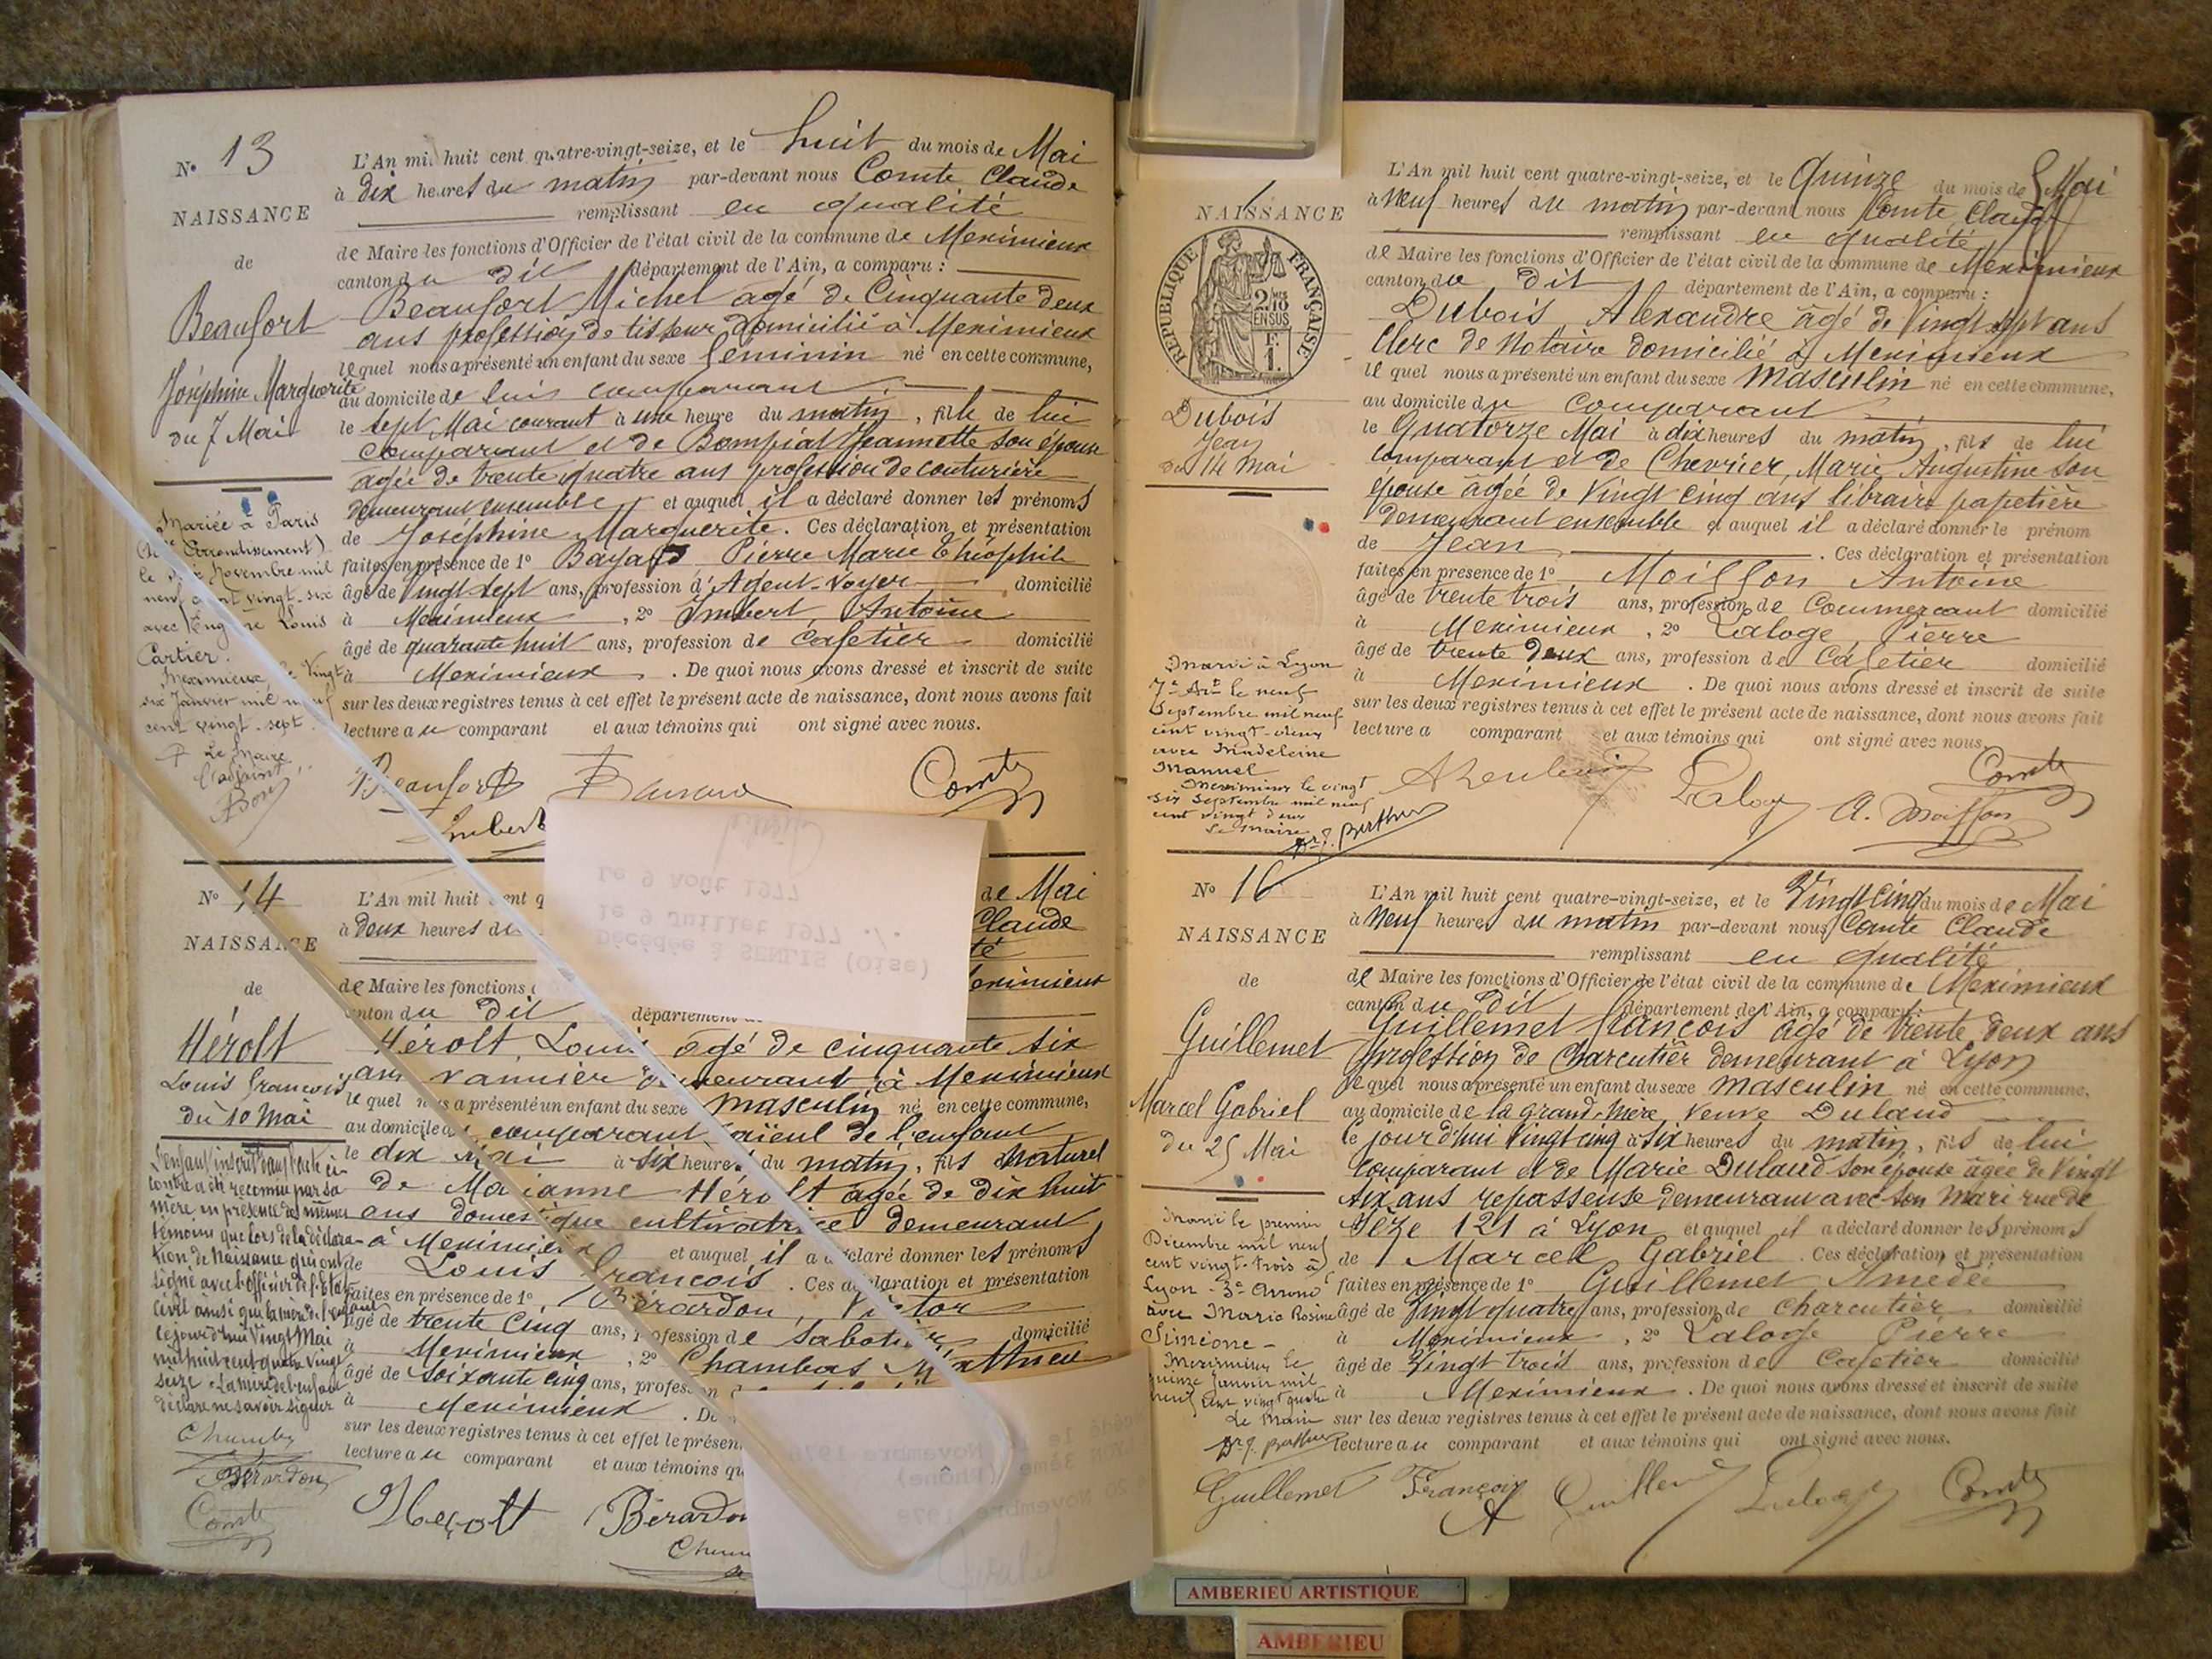 N° 13
NAISSANCE
de
Beaufort
Joséphine Marguerite
du 7 Mai
Mariée à Paris
Arrondissement)
novembre mil
vingt-six
avec Louis
Cartier.
Meximieux le Vingt
six Janvier mil neuf
cent vingt-sept
Le Maire
L'adjoint
L'An mil huit cent quatre-vingt-seize, et le huit du mois de Mai
à dix heures du matin par-devant nous Comte Claude
remplissant en qualité
de Maire les fonctions d'Officier de l'état civil de la commune de Meximieux
canton du dit département de l'Ain, a comparu :
Beaufort Michel âgé de Cinquante deux
ans profession de tisseur domicilié à Meximieux
lequel nous a présenté un enfant du sexe féminin né en cette commune,
au domicile de lui comparant
le sept Mai courant à une heure du matin, fille de lui
comparant et de Bompiat Jeannette son épouse
âgée de trente quatre ans profession de couturière
demeurant ensemble et auquel il a déclaré donner les prénoms
de Joséphine Marguerite. Ces déclaration et présentation
faites en présence de 1° Bayard Pierre Marie Théophile
âgé de Vingt sept ans, profession d'Agent-Voyer domicilié
à Meximieux, 2° Imbert Antoine
âgé de quarante huit ans, profession de Cafetier domicilié
à Meximieux. De quoi nous avons dressé et inscrit de suite
sur les deux registres tenus à cet effet le présent acte de naissance, dont nous avons fait
lecture au comparant et aux témoins qui ont signé avec nous.
Beaufort
Comte
Imbert
Le 9 Août 1977
Le 9 Juillet 1977 ./.
Décédée à SENLIS (Oise)
N° 14
NAISSANCE
de
Hérolt
Louis François
du 10 Mai
L'enfant inscrit dans l'acte ci-
contre a été reconnu par sa
mère en présence des mêmes
témoins que lors de la déclara-
tion de Naissance qui ont
signé avec l'officier de l'Etat
Civil ainsi que la mère de l'enfant
ce jourd'hui Vingt Mai
mil huit cent quatre Vingt
seize. La mère de l'enfant
déclare ne savoir signer
Chamba
Bérardon
Comte
L'An mil huit cent q
de Mai
à deux heures du
Claude
té
de Maire les fonctions
eximieux
canton du dit département
Hérolt, Louis âgé de cinquante six
ans vannier demeurant à Meximieux
lequel nous a présenté un enfant du sexe Masculin né en cette commune,
au domicile du comparant aïeul de l'enfant
le dix Mai à six heures du matin, fils naturel
de Marianne Hérolt âgée de dix huit
ans domestique cultivatrice demeurant
à Meximieux et auquel il a déclaré donner les prénoms
de Louis François. Ces déclaration et présentation
faites en présence de 1° Bérardon, Victor
âgé de trente Cinq ans, profession de Sabotier domicilié
à Meximieux, 2° Chambas Mathieu
âgé de soixante cinq ans, profession
à Meximieux. De
sur les deux registres tenus à cet effet le présen
lecture au comparant et aux témoins qu
Herolt
Bérardon
Novembre
3ème (Rhône)
20 Novembre
NAISSANCE
RÉPUBLIQUE FRANÇAISE
2/10
EN SUS
F.
1.
Dubois
Jean
du 14 Mai
Marié à Lyon
7e Art le neuf
Septembre mil neuf
cent vingt-deux
avec Madeleine
Manuel
Meximieux le vingt
six Septembre mil neuf
cent vingt deux
Le Maire
Dr J. Berthier
L'An mil huit cent quatre-vingt-seize, et le Quinze du mois de Mai
à Neuf heures du matin par-devant nous Comte Claude
remplissant en qualité
de Maire les fonctions d'Officier de l'état civil de la commune de Meximieux
canton du dit département de l'Ain, a comparu :
Dubois Alexandre âgé de Vingt sept ans
Clerc de Notaire domicilié à Meximieux
lequel nous a présenté un enfant du sexe Masculin né en cette commune,
au domicile du comparant
le Quatorze Mai à dix heures du matin, fils de lui
comparant et de Chevrier, Marie Augustine son
épouse âgée de Vingt cinq ans libraire papetière
demeurant ensemble et auquel il a déclaré donner le prénom
de Jean. Ces déclaration et présentation
faites en présence de 1° Moisson Antoine
âgé de trente trois ans, profession de Commerçant domicilié
à Meximieux, 2° Laloge Pierre
âgé de trente deux ans, profession de Cafetier domicilié
à Meximieux. De quoi nous avons dressé et inscrit de suite
sur les deux registres tenus à cet effet le présent acte de naissance, dont nous avons fait
lecture a comparant et aux témoins qui ont signé avec nous.
Laloge
A. Moisson
Comte
N° 16
NAISSANCE
de
Guillemet
Marcel Gabriel
du 25 Mai
Marié le premier
Décembre mil neuf
cent vingt-trois à
Lyon - 3e Arrond
avec Marie Rosine
Siméone -
Meximieux le
quinze Janvier mil
neuf cent vingt quatre
Le Maire
Dr J. Berthier
L'An mil huit cent quatre-vingt-seize, et le Vingt Cinq du mois de Mai
à Neuf heures du matin par-devant nous Comte Claude
remplissant en qualité
de Maire les fonctions d'Officier de l'état civil de la commune de Meximieux
canton du dit département de l'Ain, a comparu :
Guillemet François âgé de trente deux ans
profession de Charcutier demeurant à Lyon
lequel nous a présenté un enfant du sexe masculin né en cette commune,
au domicile de la grand-Mère Veuve Dulaud
le jourd'hui Vingt cinq à six heures du matin, fils de lui
comparant et de Marie Dulaud son épouse âgée de Vingt
six ans repasseuse demeurant avec son Mari rue de
Sèze 121 à Lyon et auquel il a déclaré donner les prénoms
de Marcel Gabriel. Ces déclaration et présentation
faites en présence de 1° Guillemet Amédée
âgé de Vingt quatre ans, profession de Charcutier domicilié
à Meximieux, 2° Laloge Pierre
âgé de Vingt trois ans, profession de Cafetier domicilié
à Meximieux. De quoi nous avons dressé et inscrit de suite
sur les deux registres tenus à cet effet le présent acte de naissance, dont nous avons fait
lecture au comparant et aux témoins qui ont signé avec nous.
Guillemet François
A Guillemet
Laloge
Comte
AMBERIEU ARTISTIQUE
AMBERIEU